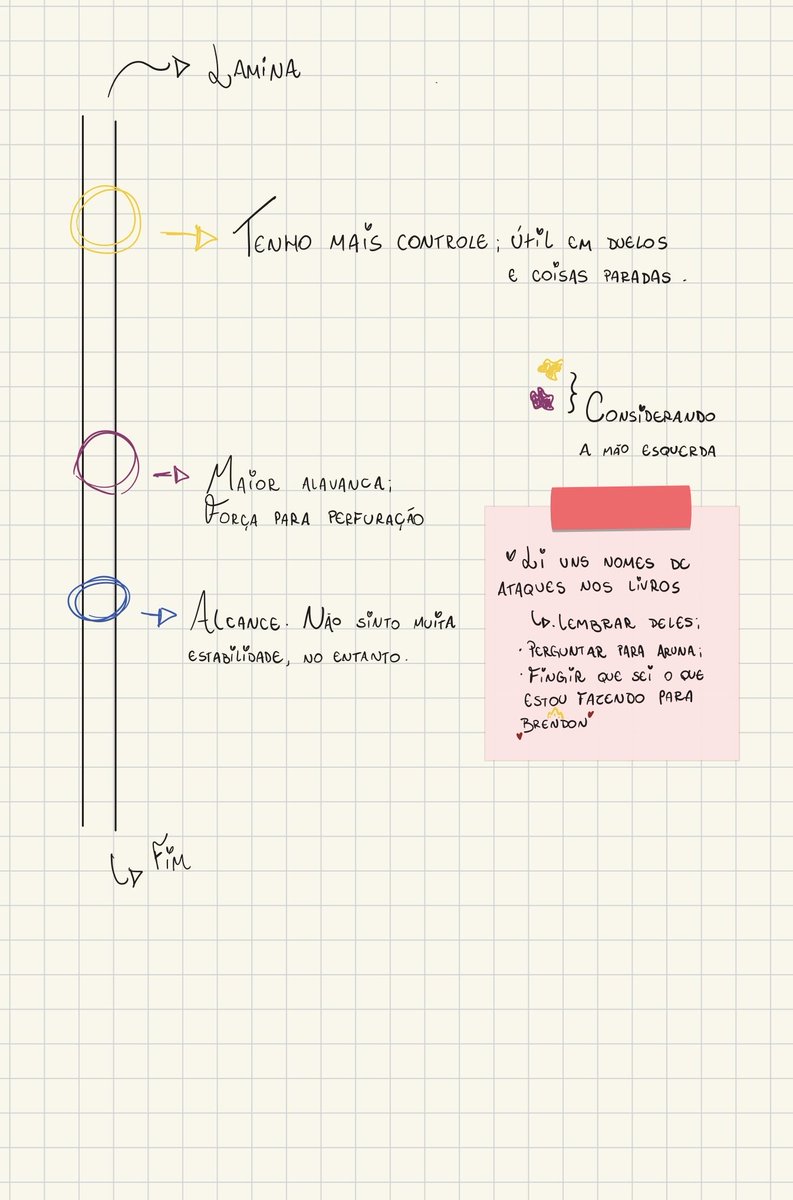 Lamina
Tenho mais controle; útil em duelos
e coisas paradas.
} Considerando
a mão esquerda
Maior alavanca;
Força para perfuração
Li uns nomes de
ataques nos livros
Lembrar deles;
· Perguntar para Aruna;
· Fingir que sei o que
estou fazendo para
Brendon
Alcance. Não sinto muita
estabilidade, no entanto.
Fim